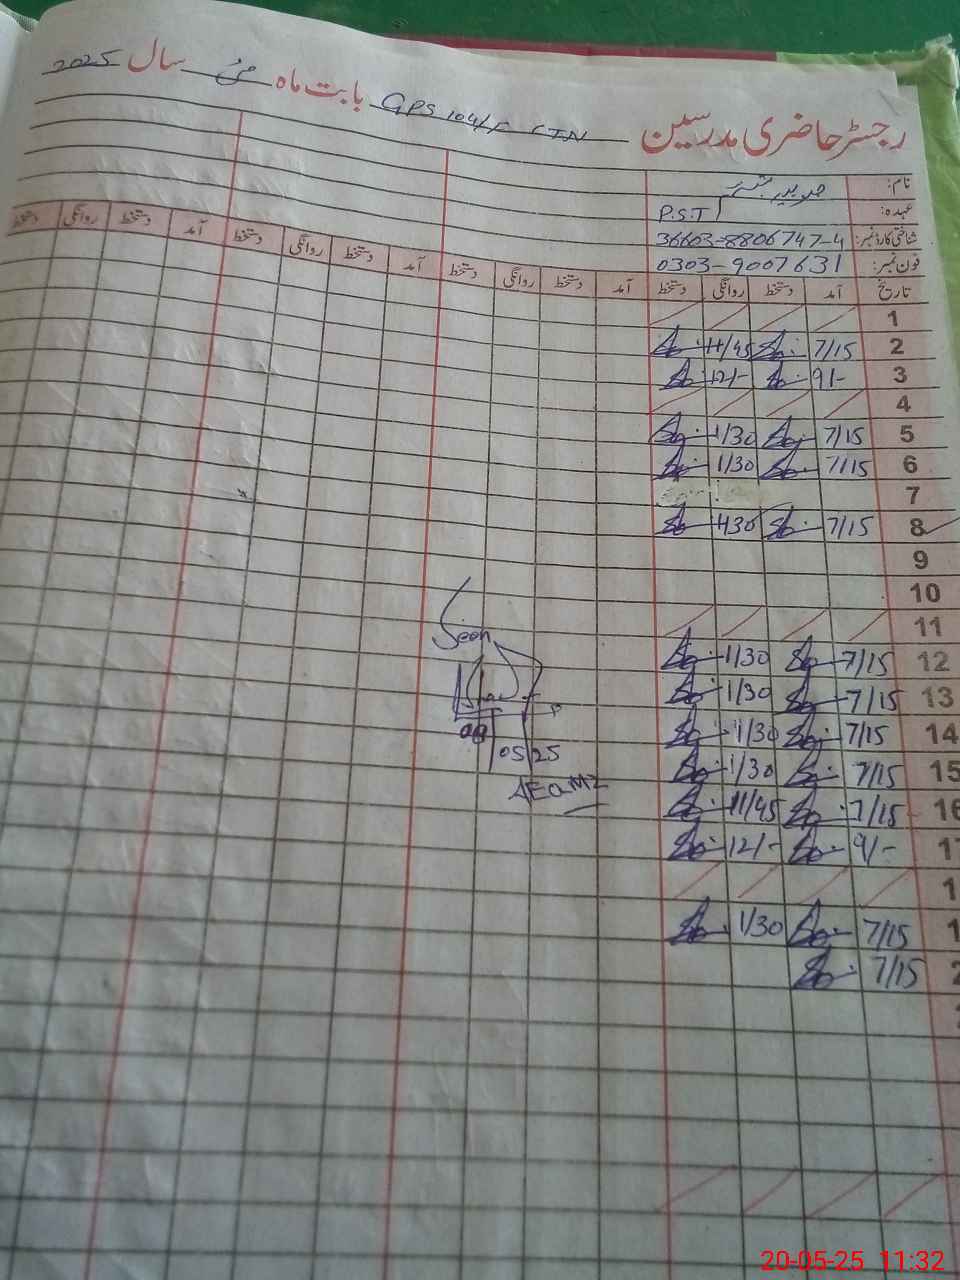 رجسٹر حاضری مدرسین GPS 104/F CTN بابت ماہ مئی سال 2025
نام:
عہدہ: P.S.T
شناختی کارڈ نمبر: 36603-8806747-4
فون نمبر: 0303-9007631
تاریخ آمد دستخط روانگی دستخط آمد دستخط روانگی دستخط آمد دستخط روانگی دستخط آمد دستخط روانگی دستخط
1
2 7/15 11/45
3 9/- 12/-
4
5 7/15 1/30
6 7/15 1/30
7
8 7/15 1/30
9
10
11
12 7/15 1/30
13 7/15 1/30
14 7/15 1/30
15 7/15 1/30
16 7/15 11/45
17 9/- 12/-
1
1 7/15 1/30
2 7/15
Seen
08/05/25
20-05-25 11:32